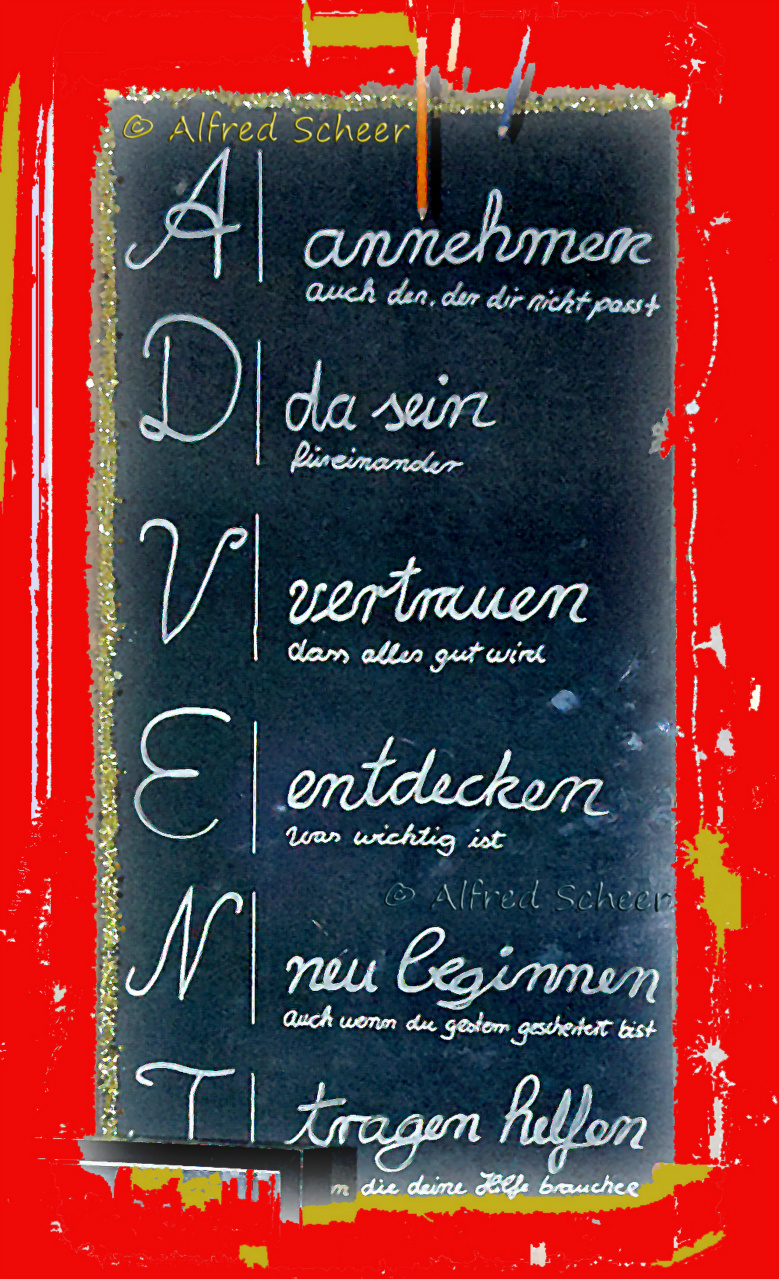 © Alfred Scheer
A annehmen
auch den, der dir nicht passt
D da sein
füreinander
V vertrauen
dass alles gut wird
E entdecken
was wichtig ist
© Alfred Scheer
N neu beginnen
auch wenn du gestern gescheitert bist
T tragen helfen
die deine Hilfe brauchen